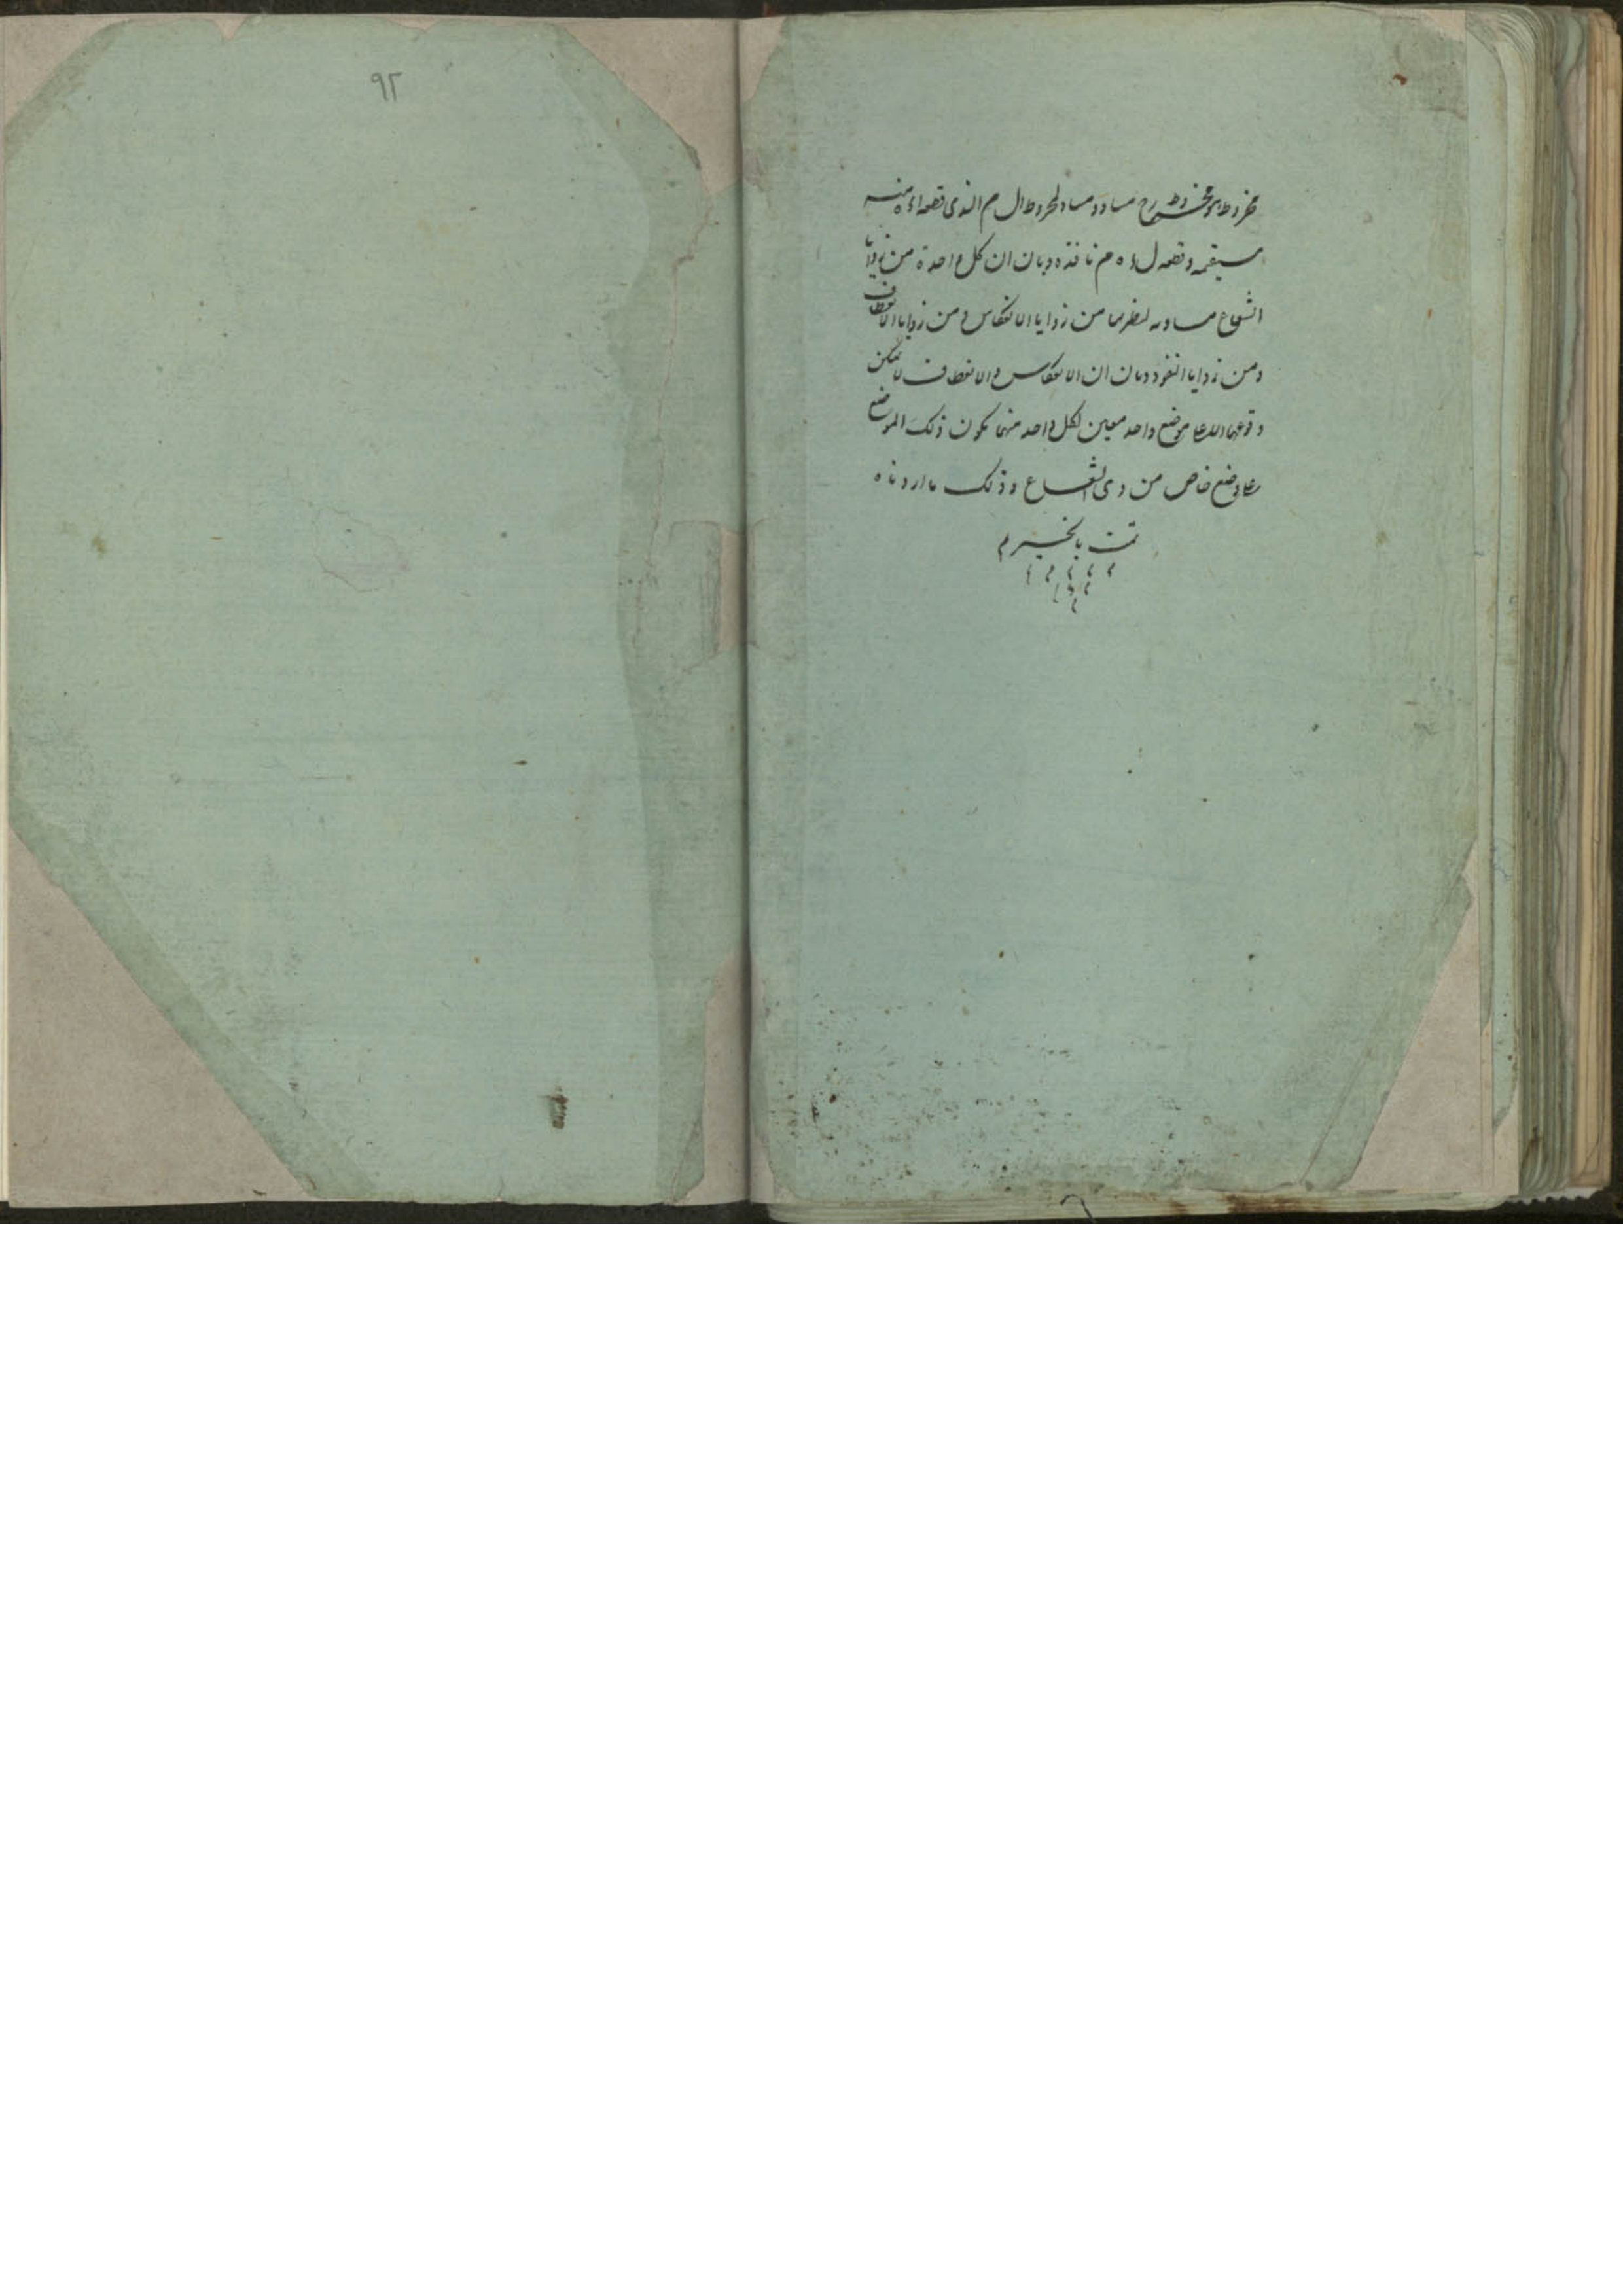 مخروط ى مخروط ح مساو و مساو لمخروط ال م الذى قطعه ا ه منه
مستقيمه و قطعه ل ه م نافذه و بان ان كل واحدة من زوايا
الشعاع مساويه لنظيرتها من زوايا الانعكاس و من زوايا الانعطاف
و من زوايا النفوذ و بان ان الانعكاس و الانعطاف لا يمكن
وقوعهما الا على موضع واحد معين لكل واحد منهما يكون ذلك الموضع
على وضع خاص من ذى الشعاع و ذلك ما اردناه
تمت بالخير م
٩٢